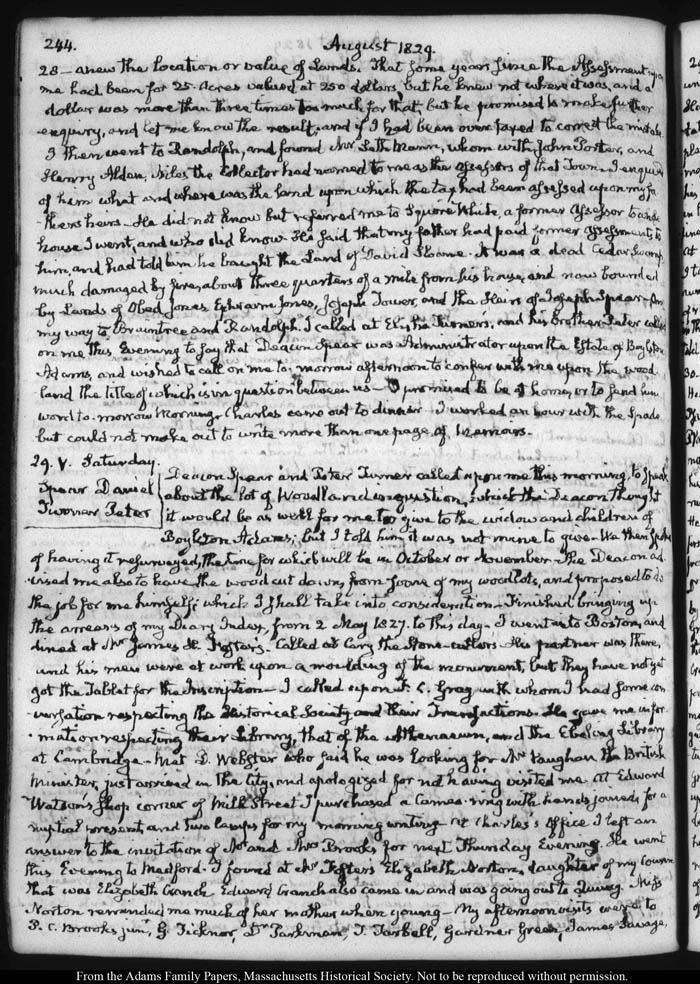 244. August 1829.
28 — anew the location or value of Lands. That some years since the Assessment upon
me had been for 25 Acres valued at 250 dollars, but he knew not where it was, and a
dollar was more than three times too much for that, but he promised to make further
enquiry, and let me know the result, and if I had been over taxed to correct the mistake.
I then went to Randolph, and found Mr Seth Mann, whom with John Porter, and
Henry Alden, Niles the Collector had named to me as the Assessors of that Town. I enquired
of him what and where was the land upon which the tax had been assessed upon my fa-
thers heirs — He did not know but referred me to Squire White, a former Assessor to whose
house I went, and who did know. He said that my father had paid former assessments to
him, and had told him he bought the Land of David Sloane. It was a dead Cedar Swamp,
much damaged by fires, about three quarters of a mile from his house, and now bounded
by Lands of Obed Jones, Ephraim Jones, Joseph Tower, and the Heirs of Joseph Spear — On
my way to Braintree and Randolph, I called at Elisha Turner's, and his brother Peter called
on me this Evening to say that Deacon Spear was Administrator upon the Estate of Boylston
Adams, and wished to call on me to-morrow afternoon to confer with me upon the wood
land the title of which is in question between us — I promised to be at home, or to send him
word to-morrow Morning. Charles came out to dinner. I worked an hour with the Spade
but could not make out to write more than one page of Memoirs.
29. V. Saturday.
Spear Daniel
Turner Peter
Deacon Spear and Peter Turner called upon me this morning to speak
about the lot of Woodland in question, which the Deacon thought
it would be as well for me to give to the widow and children of
Boylston Adams; but I told him it was not mine to give — We then spoke
of having it resurveyed, the time for which will be in October or November. The Deacon ad-
vised me also to have the wood cut down, from some of my woodlots, and proposed to do
the job for me himself; which I shall take into consideration — Finished bringing up
the arrears of my Diary Index, from 2 May 1827. to this day — I went to Boston, and
dined at Mr James H. Foster's. Called at Cary the Stone-cutters — His partner was there,
and his men were at work upon a moulding of the monument, but they have not yet
got the Tablet for the Inscription — I called upon F. C. Gray with whom I had some con-
versation respecting the Historical Society and their Transactions. He gave me infor-
mation respecting their Library, that of the Athenaeum, and the Ebeling Library
at Cambridge — Met D. Webster who said he was looking for Mr Vaughan the British
Minister, just arrived in the City, and apologized for not having visited me. At Edward
Watson's shop corner of Milk Street I purchased a Cameo ring with hands joined, for a
nuptial present, and two lamps for my morning writing — At Charles's Office I left an
answer to the invitation of Mr and Mrs Brooks for next Thursday Evening. He went
this Evening to Medford. I found at Mr Fosters Elizabeth Norton, daughter of my Cousin
that was Elizabeth Cranch. Edward Cranch also came in and was going out to Quincy. Miss
Norton reminded me much of her mother when young — My afternoon visits were to
P. C. Brooks junr, G. Ticknor, Dr Parkman, J. Tarbell, Gardner Green, James Savage,
From the Adams Family Papers, Massachusetts Historical Society. Not to be reproduced without permission.